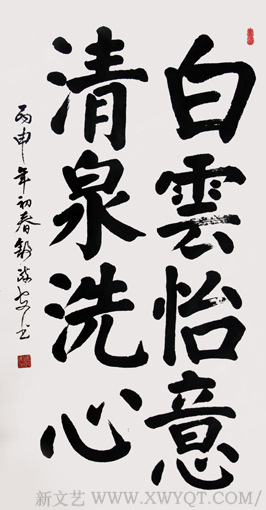 白雲怡意
清泉洗心
丙申年初春
新文艺 WWW.XWYQT.COM/